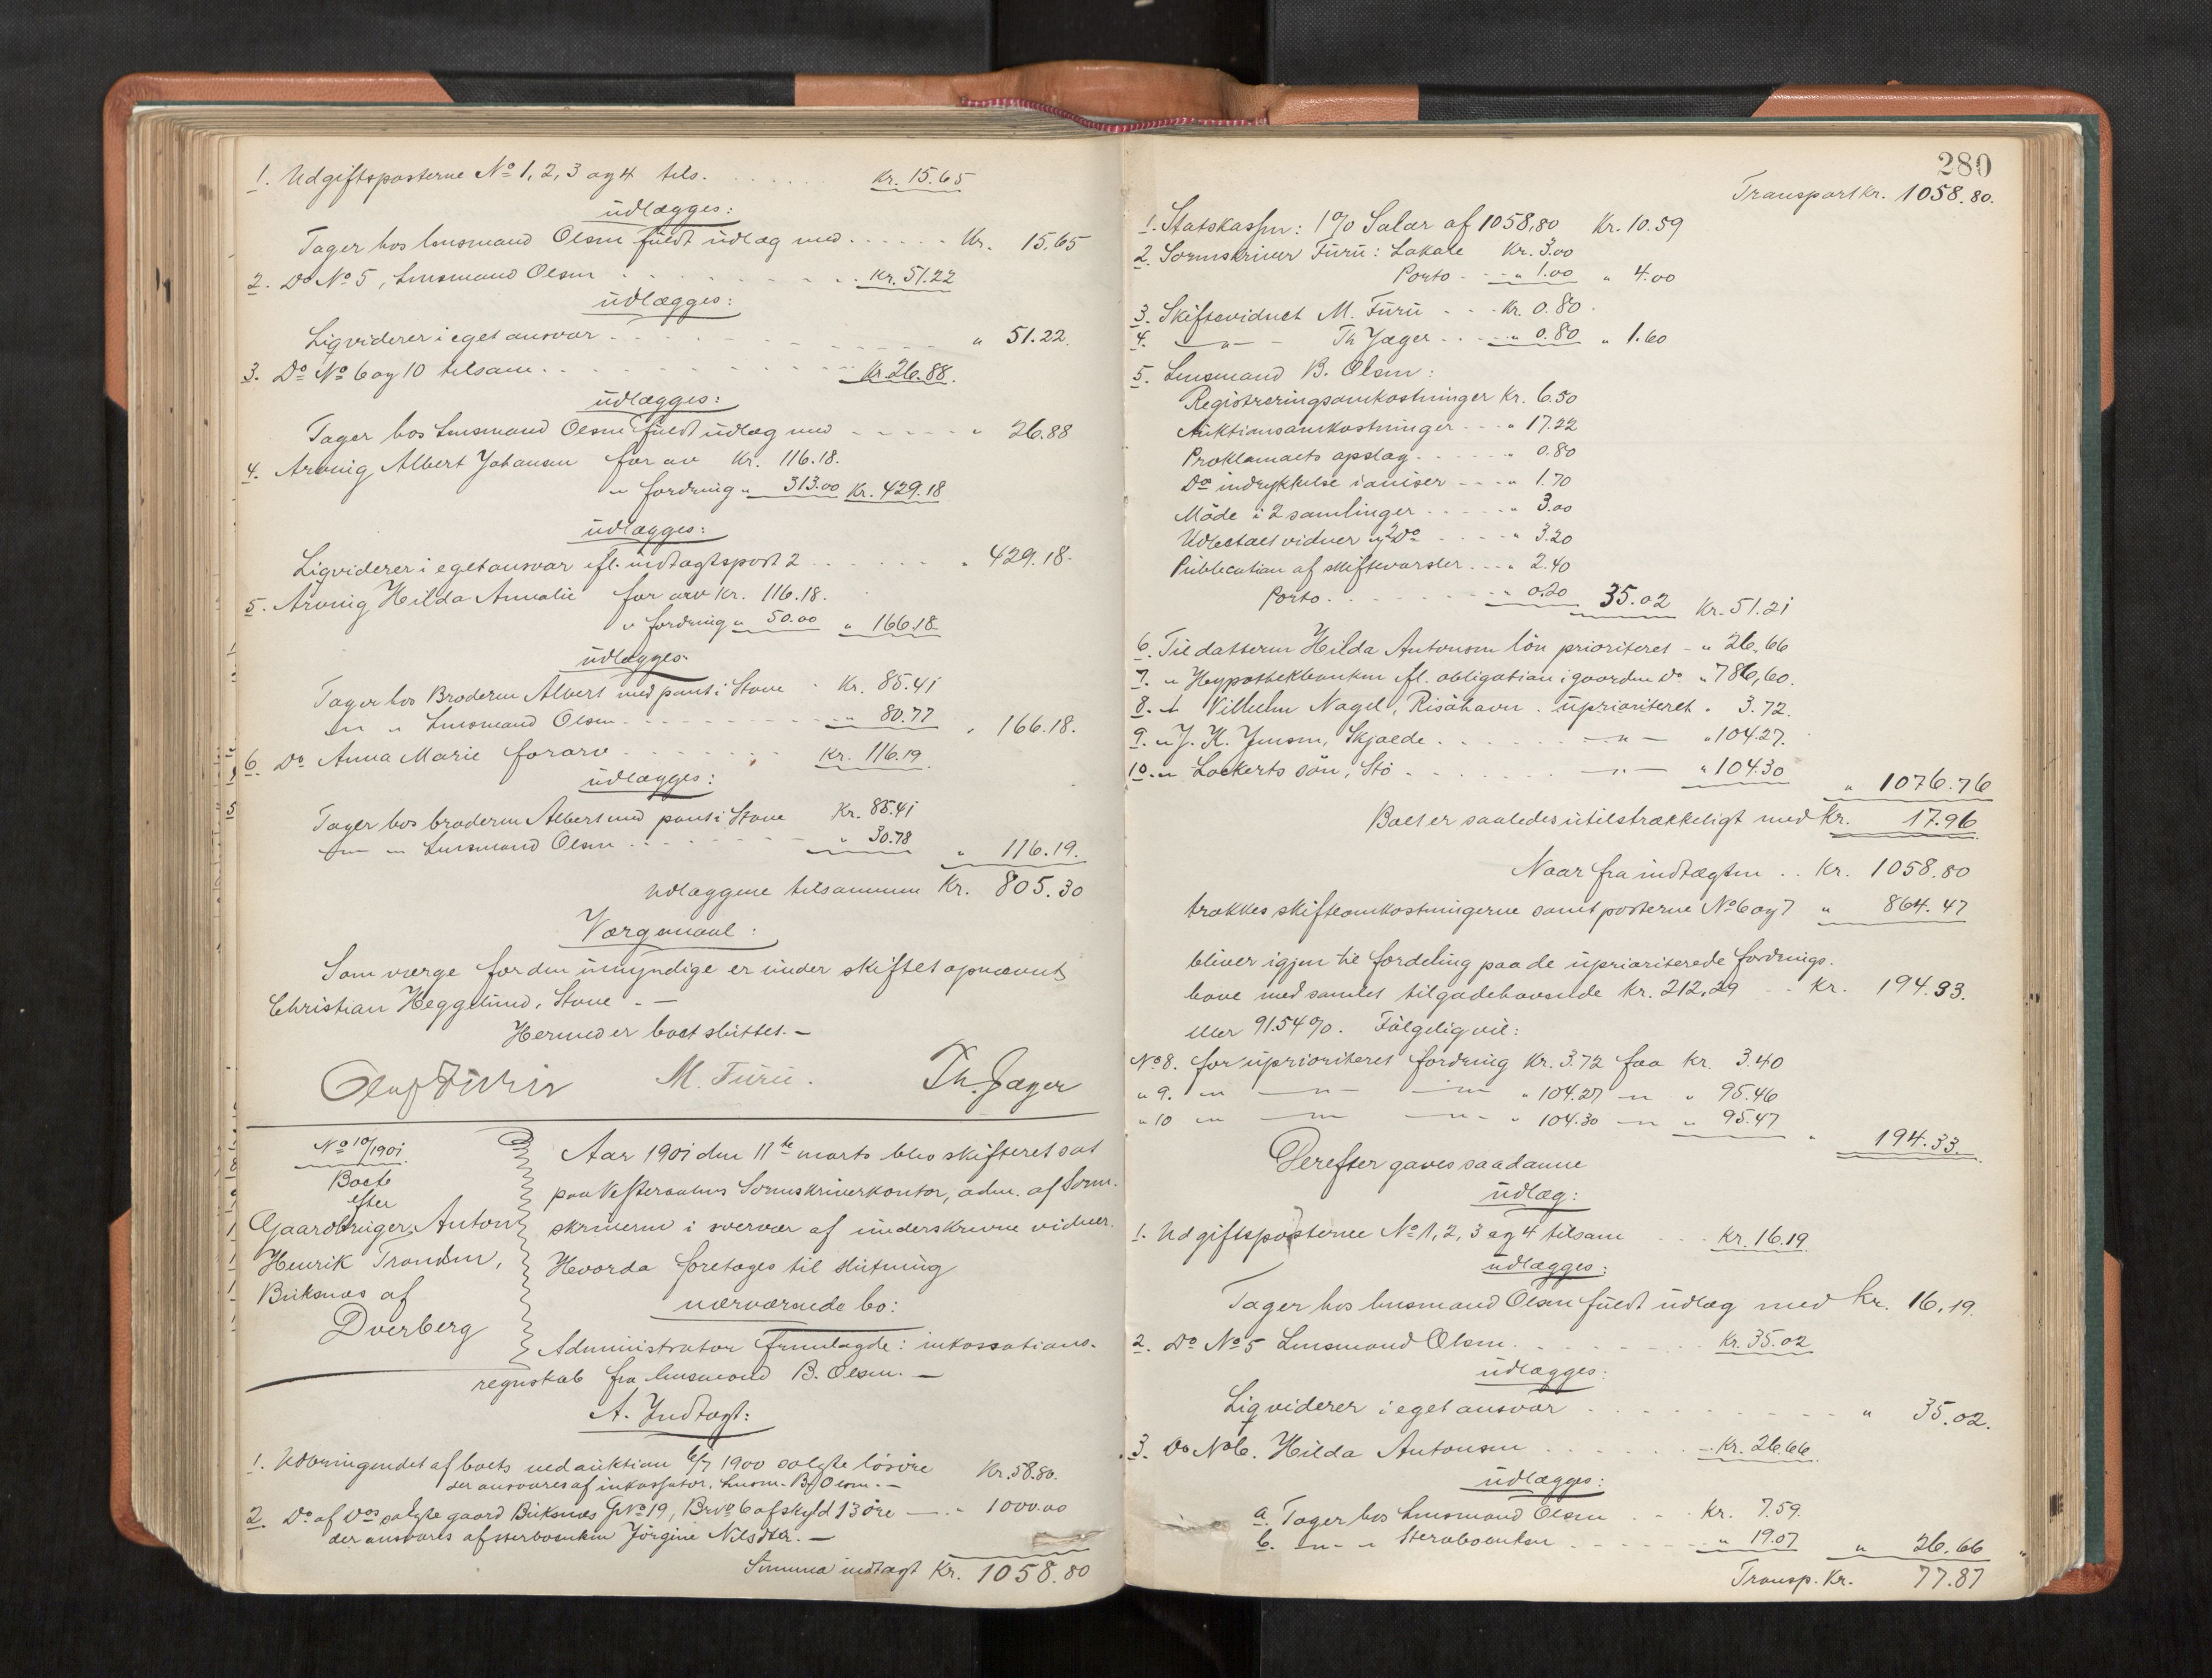 1. Udgiftsposterne No 1, 2, 3 og 4 tils. . . . . . . Kr. 15.65
udlægges:
Tager hos lensmand Olsen fuldt udlæg med . . . . . . Kr. 15.65
2. Do No 5, Lensmand Olsen . . . . . Kr. 51.22
udlægges:
Liqviderer i eget ansvar . . . . . " 51.22.
3. Do No 6 og 10 tilsam. . . . . . Kr. 26.88.
udlægges:
Tager hos Lensmand Olsen fuldt udlæg med - - - - " 26.88
4. Arving Albert Johansen for arv Kr. 116.18.
" fordring " 313.00 Kr. 429.18
udlægges:
Liqviderer i eget ansvar ifl. indtægtspost 2 . . . . . " 429.18.
5. Arving Hilda Annalie for arv Kr. 116.18.
" fordring " 50.00 " 166.18
udlægges
Tager hos Broderen Albert med pant i Stave . Kr. 85.41
" " Lensmand Olsen . . . . . " 80.77 " 166.18.
6. Do Anna Marie for arv . . . . . Kr. 116.19.
udlægges:
Tager hos broderen Albert med pant i Stave Kr. 85.41
" " Lensmand Olsen . . . . . " 30.78 " 116.19.
Udlæggene tilsammen Kr. 805.30
Værgemaal:
Som værge for den umyndige er under skiftet opnævnt
Christian Heggelund, Stave. —
Hermed er boet sluttet. —
M. Furu. Th. Jæger
No 10/1901
Boet
efter
Gaardbruger Anton
Henrik Trondsen,
Buksnes af
Dverberg
Aar 1901 den 11te marts blev skifteret sat
paa Vesteraalens Sorenskriverkontor, adm. af Soren-
skriveren i overvær af underskrevne vidner.
Hvorda foretoges til slutning
nærværende bo:
Administrator fremlagde: inkassations-
regnskab fra lensmand B. Olsen. —
A. Indtægt:
1. Udbringendet af boets ved auktion 6/7 1900 solgte løsøre Kr. 58.80.
der ansvares af inkassator, Lensm. B. Olsen. —
2. Do af Dos solgte gaard Buksnes Gno 19, Brno 6 af skyld 13 øre — " 1000.00
der ansvares af sterboenken Jørgine Nilsdtr. —
Summa indtægt Kr. 1058.80
280
Transport Kr. 1058.80.
1. Statskassen: 1% Salær af 1058,80 Kr. 10.59
2. Sorenskriver Furu: Lokale Kr. 3.00
Porto - - - " 1.00 " 4.00
3. Skiftevidnet M. Furu . . . Kr. 0.80.
4. —"— Th Jæger . . . " 0.80 " 1.60
5. Lensmand B. Olsen:
Registreringsomkostninger Kr. 6.50
Auktionsomkostninger - - - " 17.22
Proklamaets opslag . . . . . " 0.80
Do indrykkelse i aviser - - - " 1.70
Møde i 2 samlinger . . . . . " 3.00
Udlæstaet vidner og Do . . . . " 3.20
Publication af skiftevarsler . . . " 2.40
Porto . . . . . " 0.20 35.02 Kr. 51.21
6. Til datteren Hilda Antonsen løn prioriteret - " 26.66
7. " Hypothekbanken ifl. obligation i gaarden Do " 786,60.
8. " Vilhelm Nagel, Risøhavn. uprioriteret " 3.72.
9. " J. K. Jensen, Skjolde . . . . . —"— " 104.27.
10. " Lockerts søn, Stø . . . . . —"— " 104.30 " 1076.76
Boet er saaledes utilstrækkeligt med Kr. 17.96
Naar fra indtægten . . Kr. 1058.80
trækkes skifteomkostningerne samt posterne No 6 og 7 " 864.47
bliver igjen til fordeling paa de uprioriterede fordrings-
have med samlet tilgodehavende Kr. 212,29 - - Kr. 194.33.
eller 91.54%. Følgelig vil:
No 8. for uprioriteret fordring Kr. 3.72 faa Kr. 3.40
" 9. —"— —"— —"— " 104.27 —"— " 95.46
" 10 —"— —"— —"— " 104.30 —"— " 95.47 " 194.33.
Derefter gaves saadanne
udlæg:
1. Udgiftsposterne No 1, 2, 3 og 4 tilsam . . . Kr. 16.19
udlægges:
Tager hos lensmand Olsen fuldt udlæg med Kr. 16.19.
2. Do No 5 Lensmand Olsen . . . . . Kr. 35.02
udlægges:
Liqviderer i eget ansvar . . . . . " 35.02.
3. Do No 6. Hilda Antonsen . . . . . Kr. 26.66
udlægges:
a. Tager hos Lensmand Olsen . . . Kr. 7.59.
b. —"— " Sterboenken . . . . . " 19.07 " 26.66
Transp. Kr. 77.87